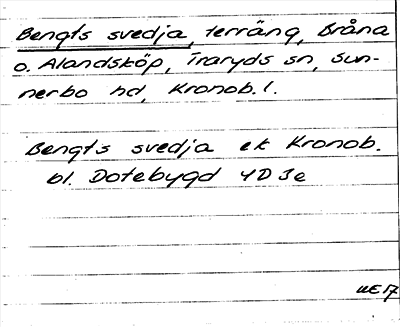 Bengts svedja, terräng, Bråna
o. Alandsköp, Traryds sn, Sun-
nerbo hd, Kronob. l.
Bengts svedja ek Kronob.
bl. Dotebygd 4D 3e